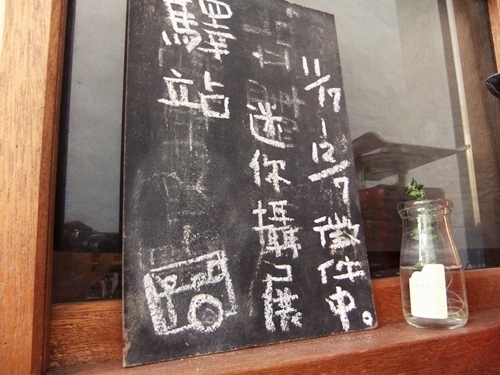 11/17-12/7徵件中。
迷你攝展
驛站